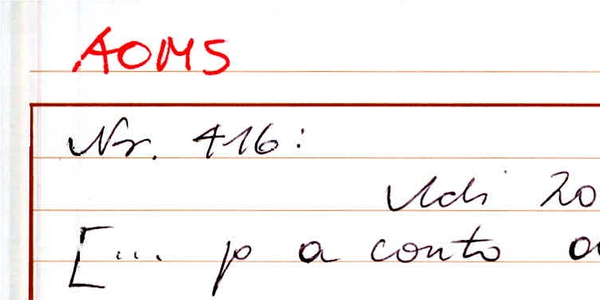 AOMS
Nr. 416:
Adi 20
[... p a conto